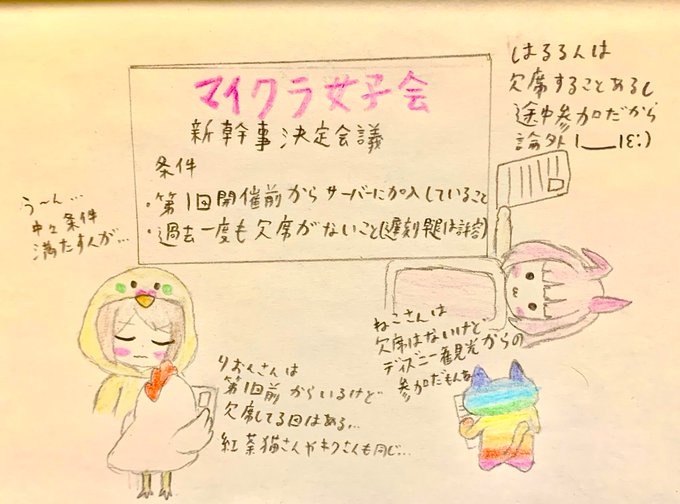 マイクラ女子会
新幹事決定会議
条件
・第1回開催前からサーバーに加入していること
・過去一度も欠席がないこと(遅刻早退は許容)
はるるんは
欠席することあるし
途中参加だから
論外 |___|ε:)
う〜ん…
中々条件
満たす人が…
ねこさんは
欠席はないけど
ディズニー観光からの
参加だもんな
りおんさんは
第1回前からいるけど
欠席してる回はある…
紅茶猫さんやネクさんも同じ…